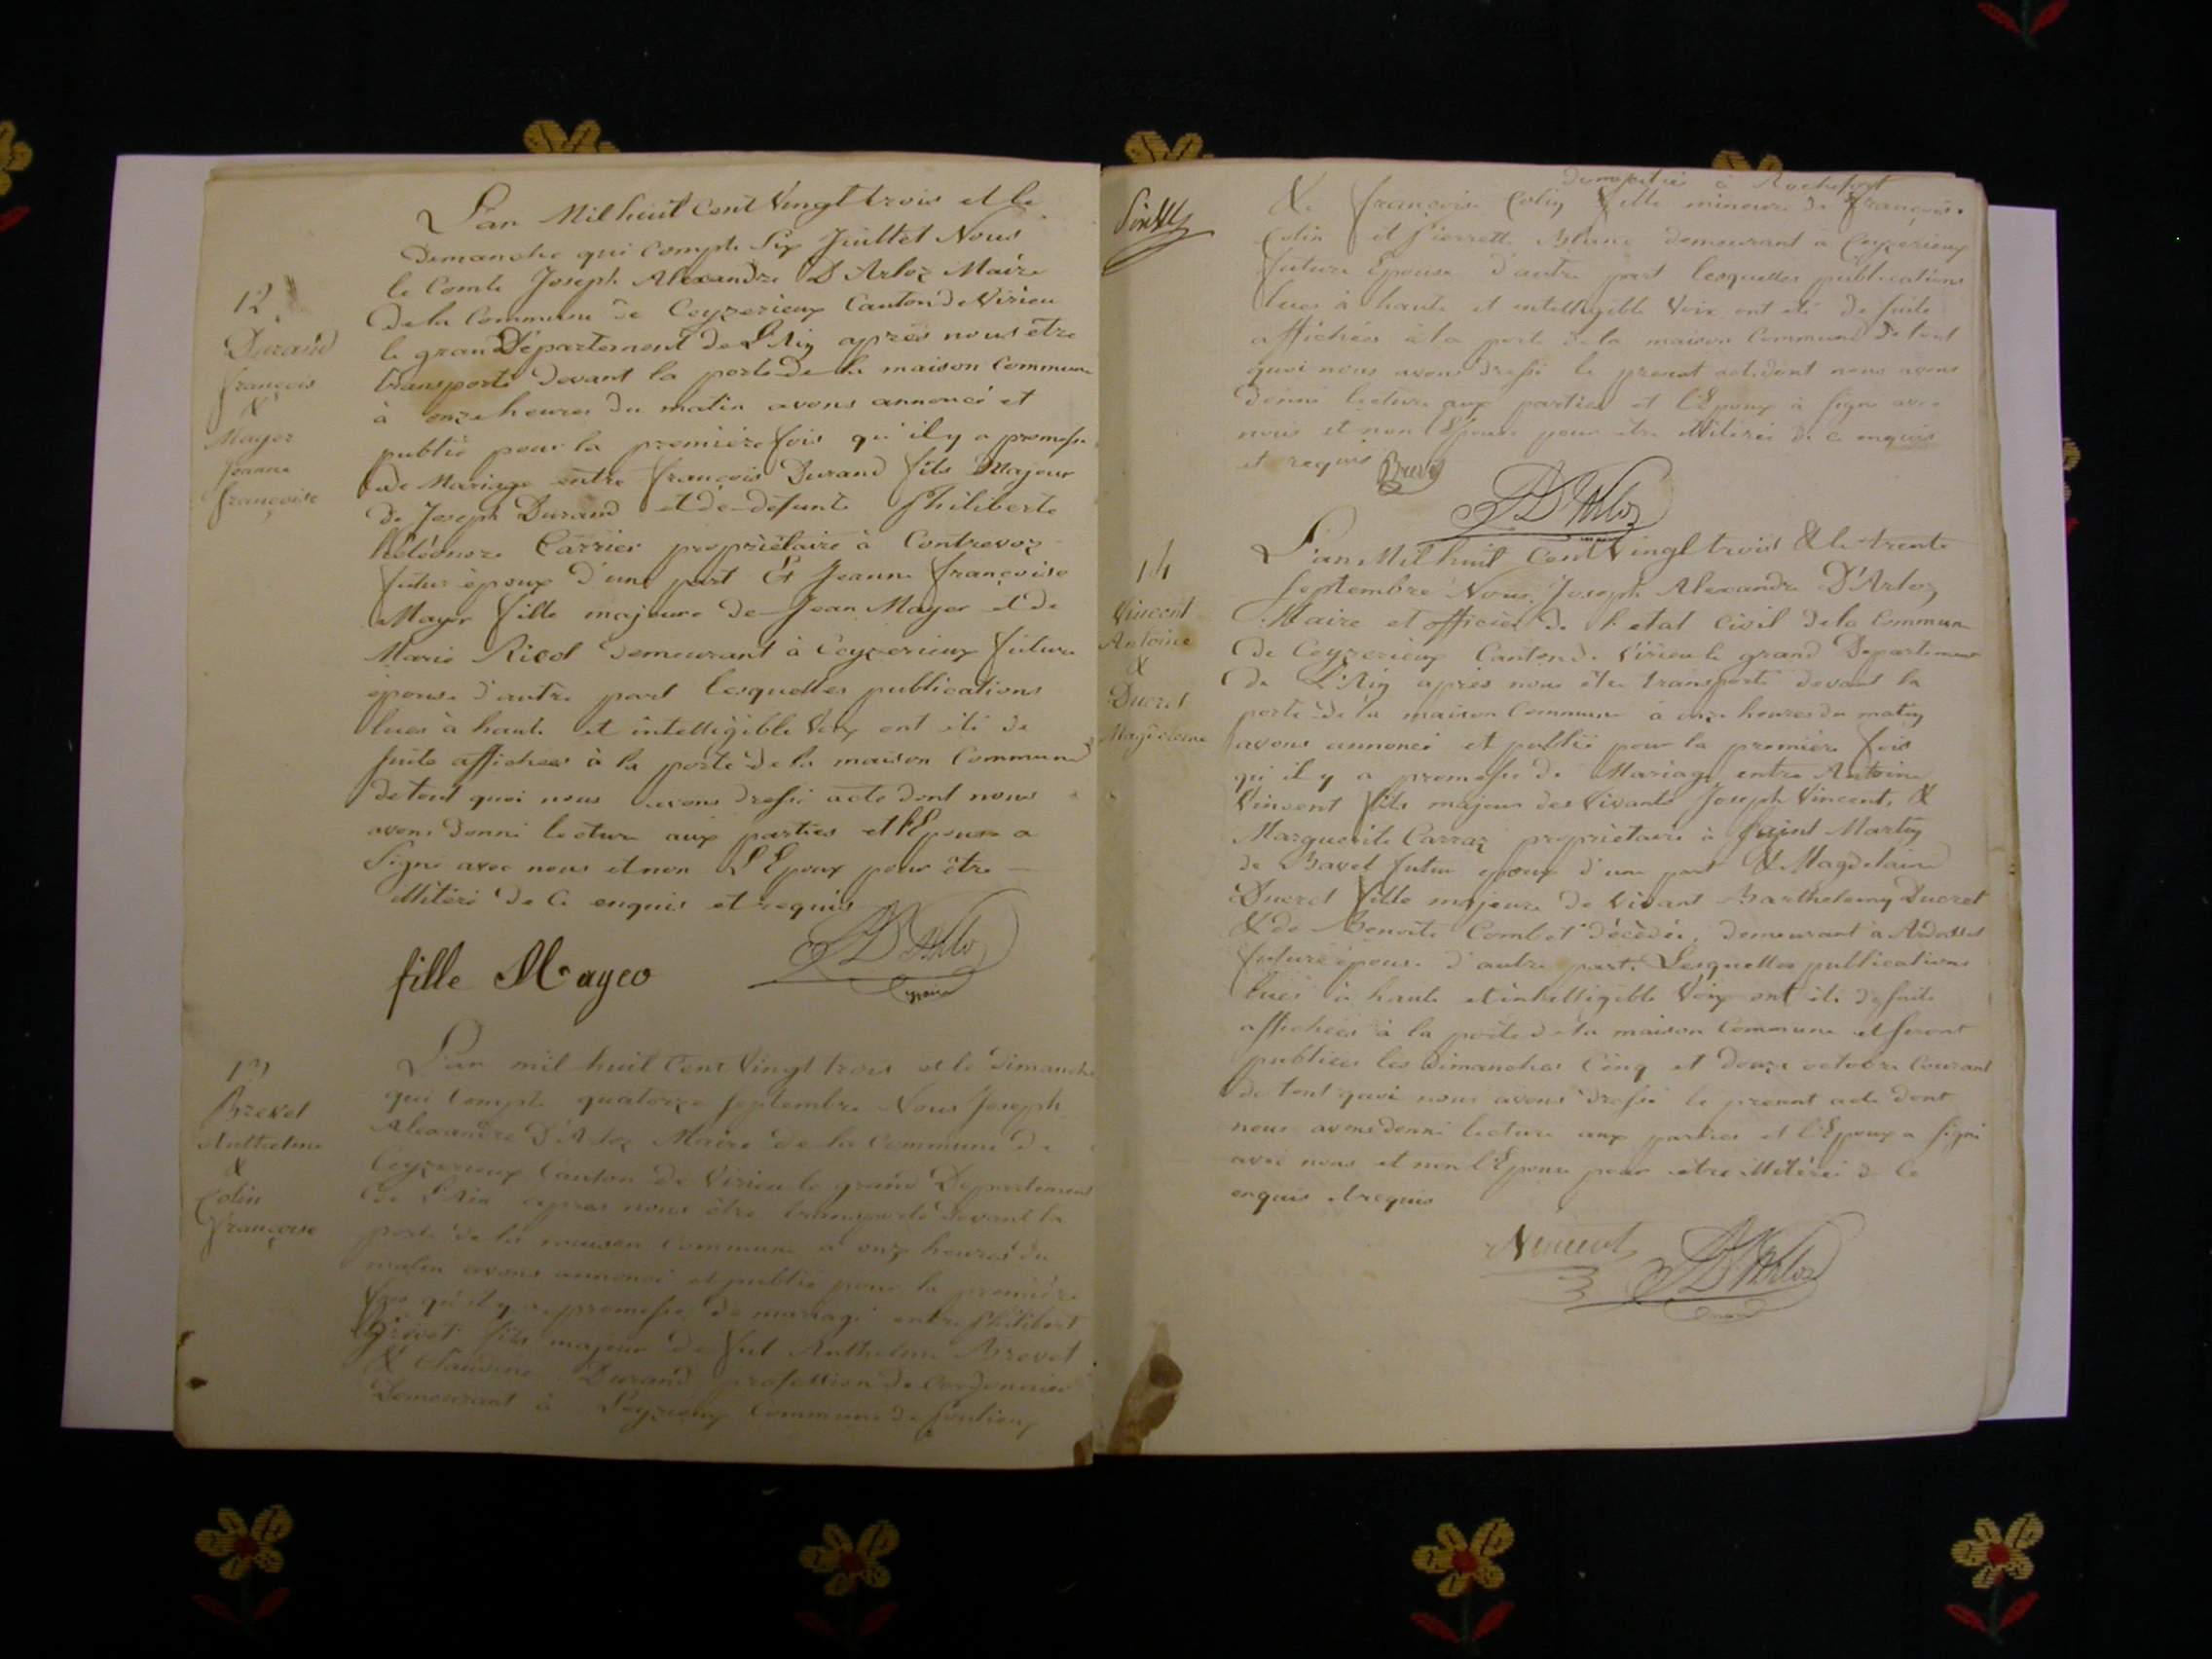 L'an Mil huit Cent Vingt trois et le
Dimanche qui Compte Six Juillet Nous
le Comte Joseph Alexandre D'Arloz Maire
De la Commune de Ceyzerieux Canton de Virieu
le grand Département De L'Ain après nous être
transporté devant la porte de la maison Commune
à onze heures du matin avons annoncé et
publié pour la première fois qu'il y a promesse
de Mariage entre françois Durand fils Majeur
De Joseph Durand et de défunte Philiberte
Carrier propriétaire à Contrevoz
futur époux d'une part Et Jeanne françoise
Mayer fille majeure de Jean Mayer et de
Marie demeurant à Ceyzerieux future
épouse d'autre part lesquelles publications
lues à haute et intelligible Voix ont été de
suite affichées à la porte de la maison Commune
de tout quoi nous avons dressé acte dont nous
avons donné lecture aux parties et l'Epouse a
Signé avec nous et non L'Epoux pour être
illitéré de ce enquis et requis
12
Durand
françois
&
Mayer
Jeanne
françoise
fille Mayer
D'Arloz
L'an mil huit Cent Vingt trois et le dimanche
qui Compte quatorze Septembre Nous Joseph
Alexandre D'Arloz Maire de la Commune de
Ceyzerieux Canton de Virieu le grand Département
De L'Ain après nous être transporté devant la
porte de la maison Commune à onze heures du
matin avons annoncé et publié pour la première
fois qu'il y a promesse de mariage entre Philibert
Brevet fils majeur de feu Anthelme Brevet
& Claudine Durand profession de Cordonnier
Demeurant à Commune de
13
Brevet
Anthelme
&
Colin
Françoise
à Rochefort
& françoise Colin fille mineure de françois
Colin et Pierrette Blanc demeurant à Ceyzerieux
future Epouse d'autre part lesquelles publications
lues à haute et intelligible Voix ont été de suite
affichées à la porte de la maison Commune de tout
quoi nous avons dressé le present acte dont nous avons
donné lecture aux parties et l'Epoux à signé avec
nous et non l'Epouse pour être illitérée de ce enquis
et requis Brevet
D'Arloz
14
Vincent
Antoine
&
Ducret
Magdelaine
L'an Mil huit Cent Vingt trois & le trente
Septembre Nous Joseph Alexandre D'Arloz
Maire et officier de l'etat Civil de la Commune
De Ceyzerieux Canton de Virieu le grand Departement
De L'Ain après nous être transporté devant la
porte de la maison Commune à onze heures du matin
avons annoncé et publié pour la première fois
qu'il y a promesse de Mariage entre Antoine
Vincent fils majeur des Vivants Joseph Vincent &
Marguerite Carraz propriétaire à Saint Martin
de Bavel futur époux d'une part & Magdelaine
Ducret fille majeure de Vivant Barthelemy Ducret
& de Benoite Combet décèdée, demeurant à Ardosset
future épouse d'autre part. Lesquelles publications
lues à haute et intelligible Voix ont été de suite
affichées à la porte de la maison Commune et seront
publiées les Dimanches Cinq et Douze octobre Courant
de tout quoi nous avons dressé le present acte dont
nous avons donné lecture aux parties et l'Epoux a signé
avec nous et non l'Epouse pour être illitérée de Ce
enquis et requis
Vincent
D'Arloz